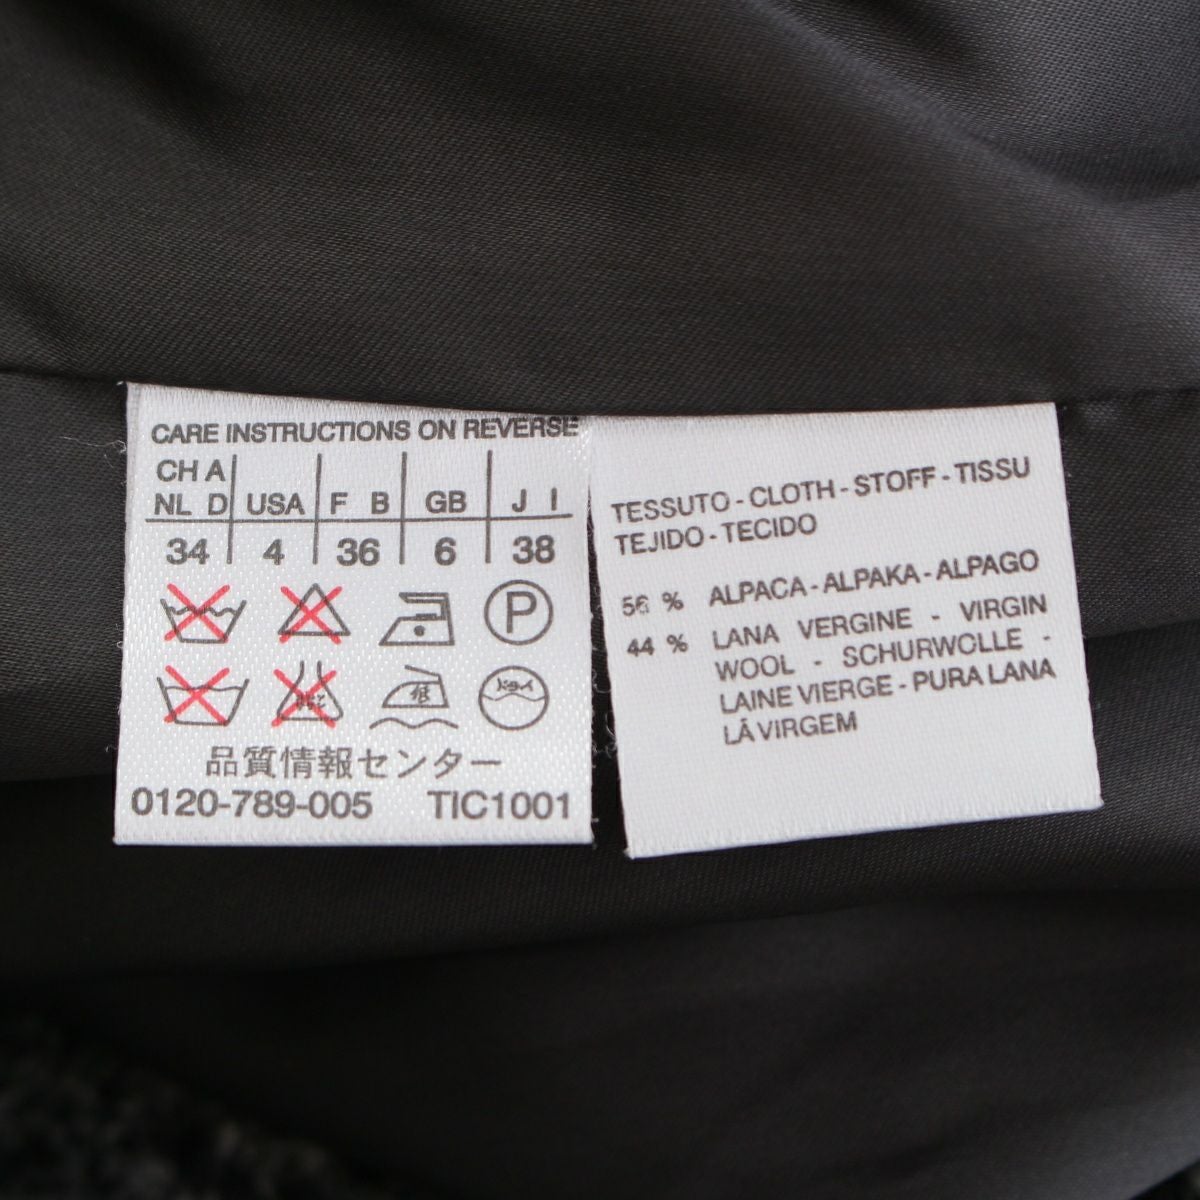 CARE INSTRUCTIONS ON REVERSE
CH A
NL D USA F B GB J I
34 4 36 6 38
P
低 ドライ
品質情報センター
0120-789-005 TIC1001
TESSUTO - CLOTH - STOFF - TISSU
TEJIDO - TECIDO
56 % ALPACA - ALPAKA - ALPAGO
44 % LANA VERGINE - VIRGIN
WOOL - SCHURWOLLE -
LAINE VIERGE - PURA LANA
LÃ VIRGEM